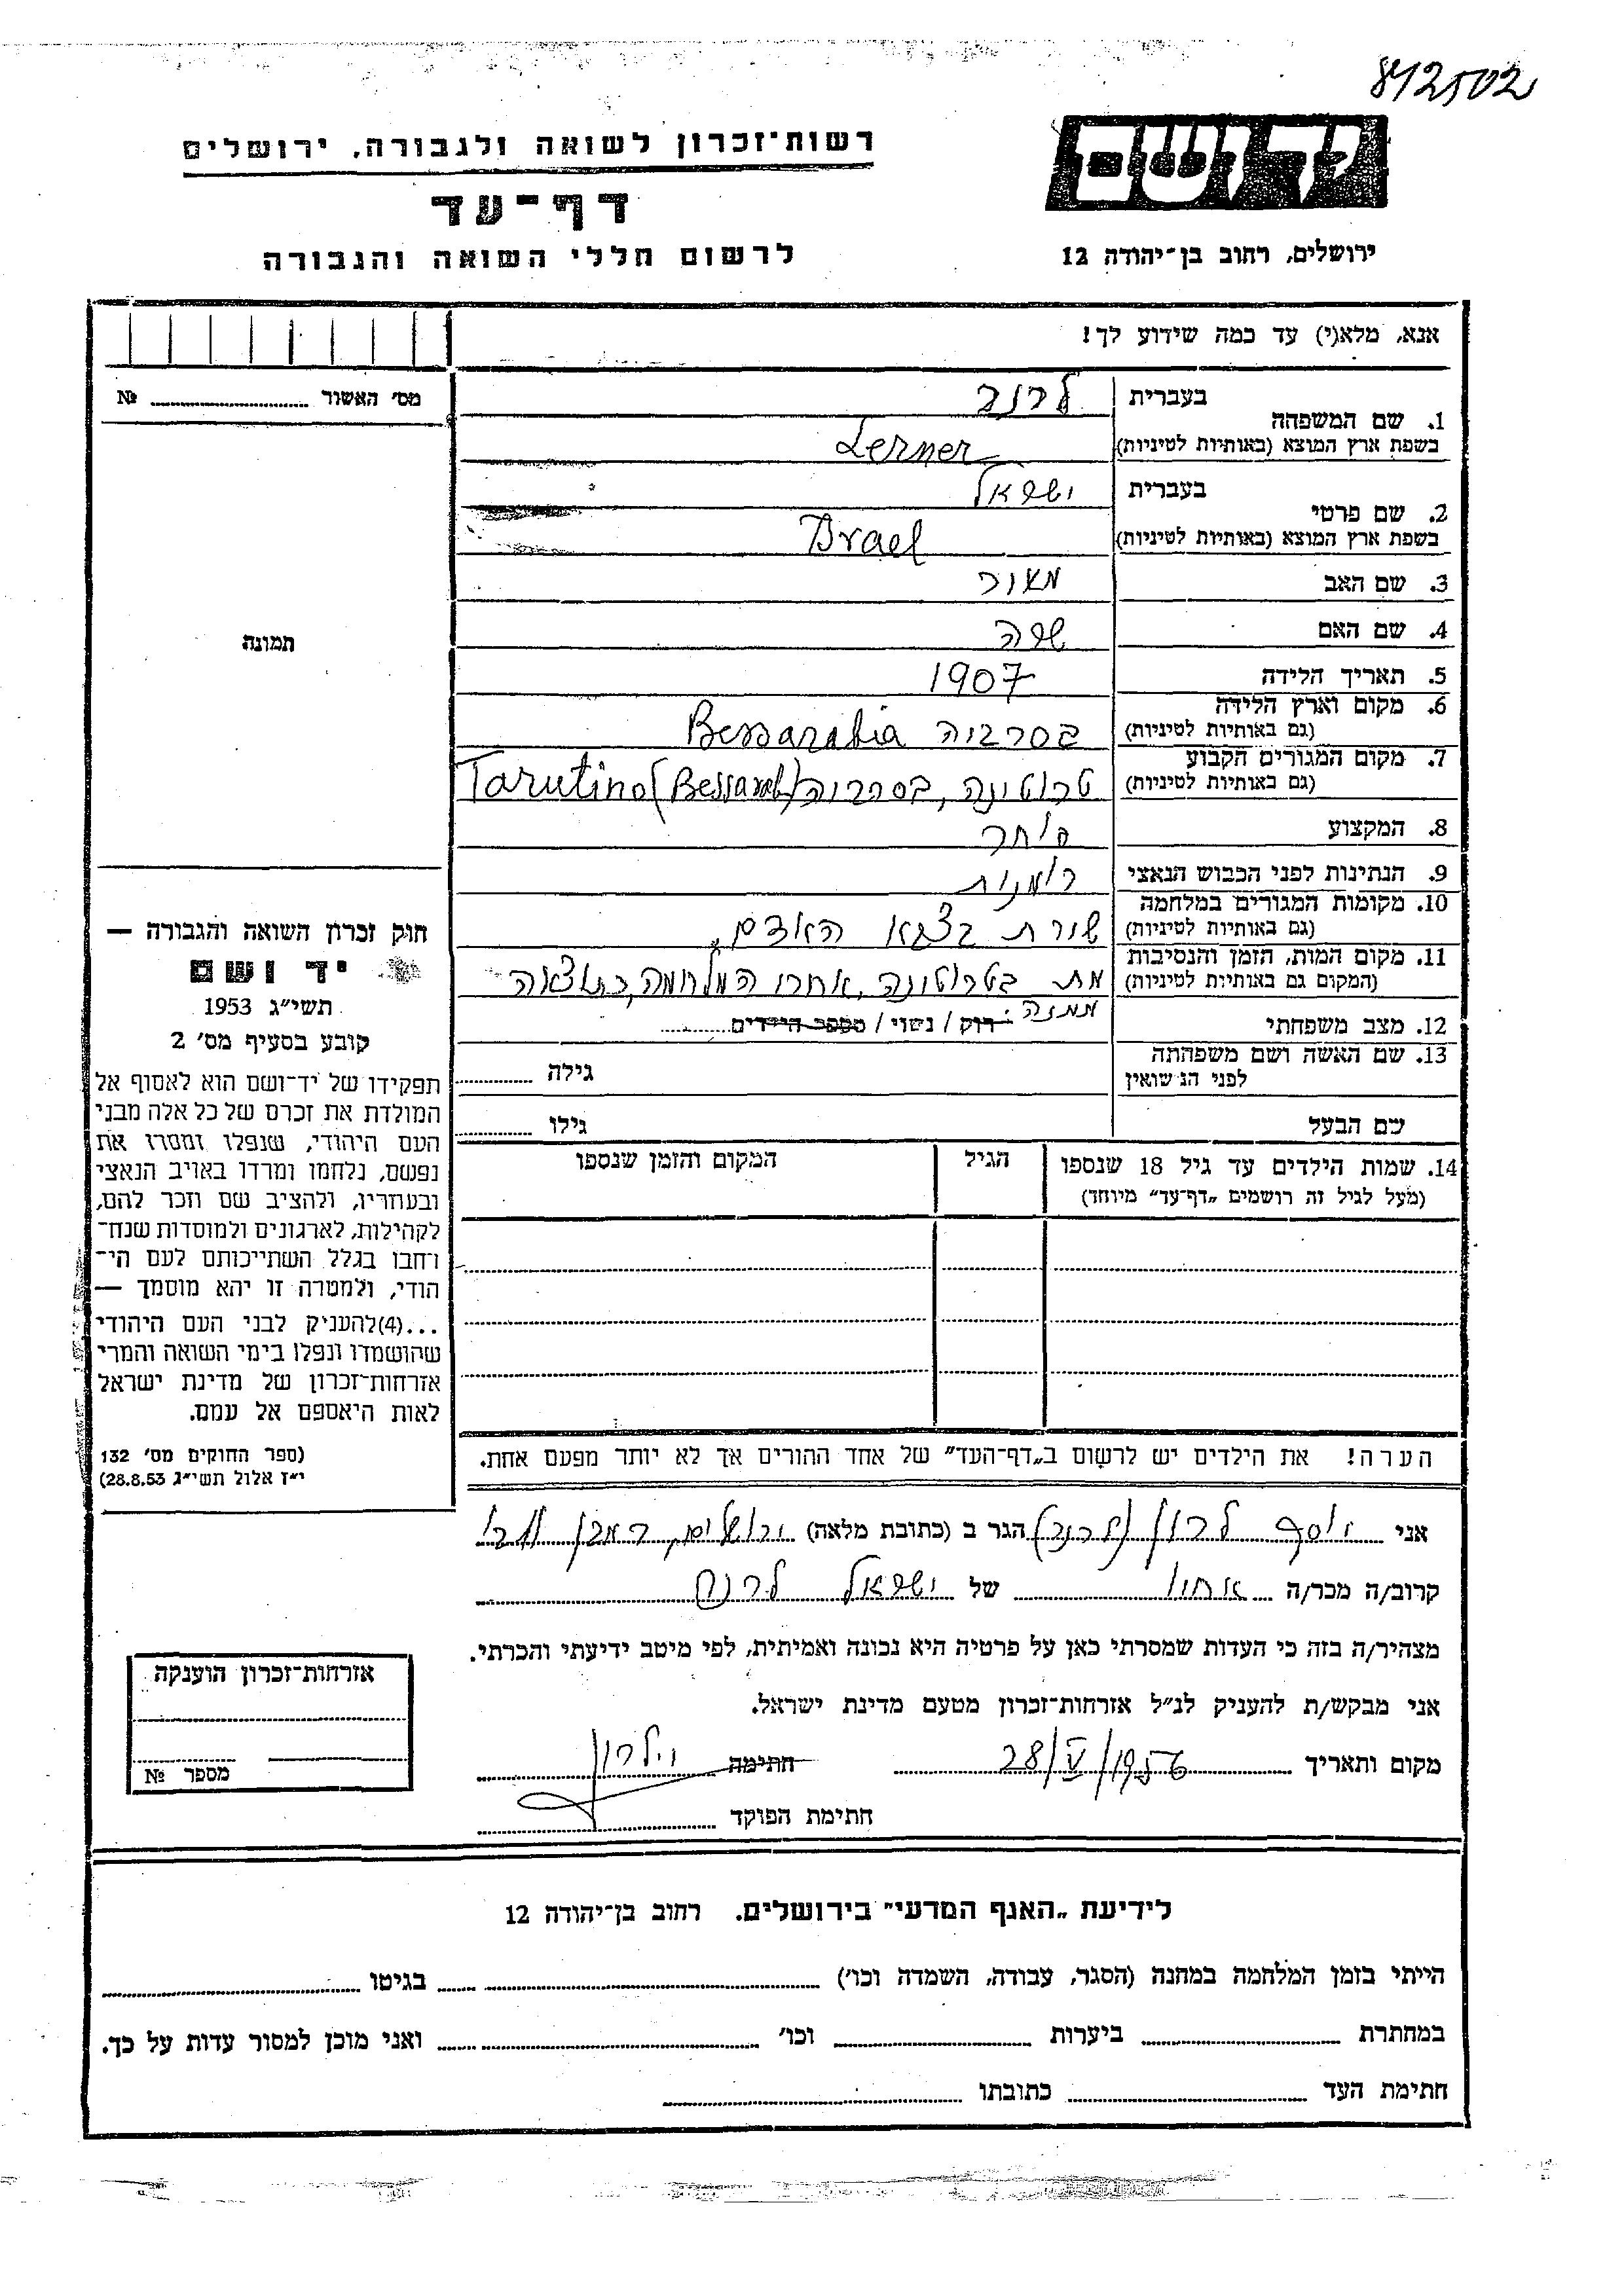 842502
רשות־זכרון לשואה ולגבורה, ירושלים
יד ושם
דף־עד
לרשום חללי השואה והגבורה
ירושלים, רחוב בן־יהודה 12
אנא, מלא(י) עד כמה שידוע לך!
מס' האשור № ..........
1. שם המשפחה בעברית לרנר
בשפת ארץ המוצא (באותיות לטיניות) Lerner
2. שם פרטי בעברית ישראל
בשפת ארץ המוצא (באותיות לטיניות) Israel
3. שם האב מאיר
4. שם האם שרה
5. תאריך הלידה 1907
6. מקום וארץ הלידה (גם באותיות לטיניות) בסרביה Bessarabia
7. מקום המגורים הקבוע (גם באותיות לטיניות) טרוטינה, בסרביה Tarutino (Bessarab)
8. המקצוע סוחר
9. הנתינות לפני הכבוש הנאצי רומנית
10. מקומות המגורים במלחמה (גם באותיות לטיניות) שורת בצבא האדום,
11. מקום המות, הזמן והנסיבות (המקום גם באותיות לטיניות) מת בטרוטינה, אחרי המלחמה, כתוצאה
ממנה.
12. מצב משפחתי רוק / נשוי / מספר הילדים ..........
13. שם האשה ושם משפחתה לפני הנשואין גילה ..........
שם הבעל גילו ..........
14. שמות הילדים עד גיל 18 שנספו הגיל המקום והזמן שנספו
(מעל לגיל זה רושמים „דף־עד" מיוחד)
הערה! את הילדים יש לרשום ב„דף־העד" של אחד ההורים אך לא יותר מפעם אחת.
תמונה
חוק זכרון השואה והגבורה —
יד ושם
תשי"ג 1953
קובע בסעיף מס' 2
תפקידו של יד־ושם הוא לאסוף אל
המולדת את זכרם של כל אלה מבני
העם היהודי, שנפלו ומסרו את
נפשם, נלחמו ומרדו באויב הנאצי
ובעוזריו, ולהציב שם וזכר להם,
לקהילות, לארגונים ולמוסדות שנח־
רחבו בגלל השתייכותם לעם הי־
הודי, ולמטרה זו יהא מוסמך —
...(4)להעניק לבני העם היהודי
שהושמדו ונפלו בימי השואה והמרי
אזרחות־זכרון של מדינת ישראל
לאות היאספם אל עמם.
(ספר החוקים מס' 132
י"ז אלול תשי"ג 28.8.53)
אני יוסף לרון (לרנר) הגר ב (כתובת מלאה) ירושלים,
קרוב/ה מכר/ה אחיו של ישראל לרנר
מצהיר/ה בזה כי העדות שמסרתי כאן על פרטיה היא נכונה ואמיתית, לפי מיטב ידיעתי והכרתי.
אני מבקש/ת להעניק לנ"ל אזרחות־זכרון מטעם מדינת ישראל.
מקום ותאריך 28/V/1956 חתימה י. לרון
חתימת הפוקד ..........
אזרחות־זכרון הוענקה
מספר №
לידיעת „האנף המדעי" בירושלים. רחוב בן־יהודה 12
הייתי בזמן המלחמה במחנה (הסגר, עבודה, השמדה וכו') .......... בגיטו ..........
במחתרת .......... ביערות .......... וכו' .......... ואני מוכן למסור עדות על כך.
חתימת העד .......... כתובתו ..........